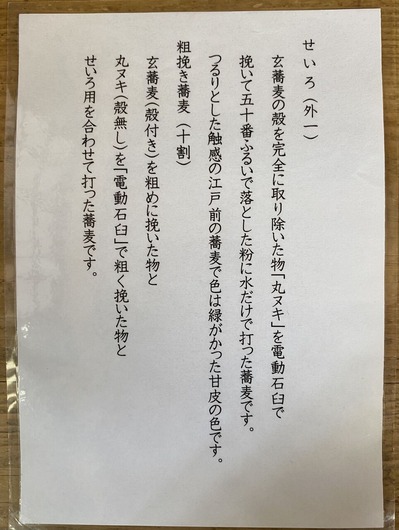 せいろ（外一）
玄蕎麦の殻を完全に取り除いた物「丸ヌキ」を電動石臼で
挽いて五十番ふるいで落とした粉に水だけで打った蕎麦です。
つるりとした触感の江戸前の蕎麦で色は緑がかった甘皮の色です。
粗挽き蕎麦（十割）
玄蕎麦（殻付き）を粗めに挽いた物と
丸ヌキ（殻無し）を「電動石臼」で粗く挽いた物と
せいろ用を合わせて打った蕎麦です。